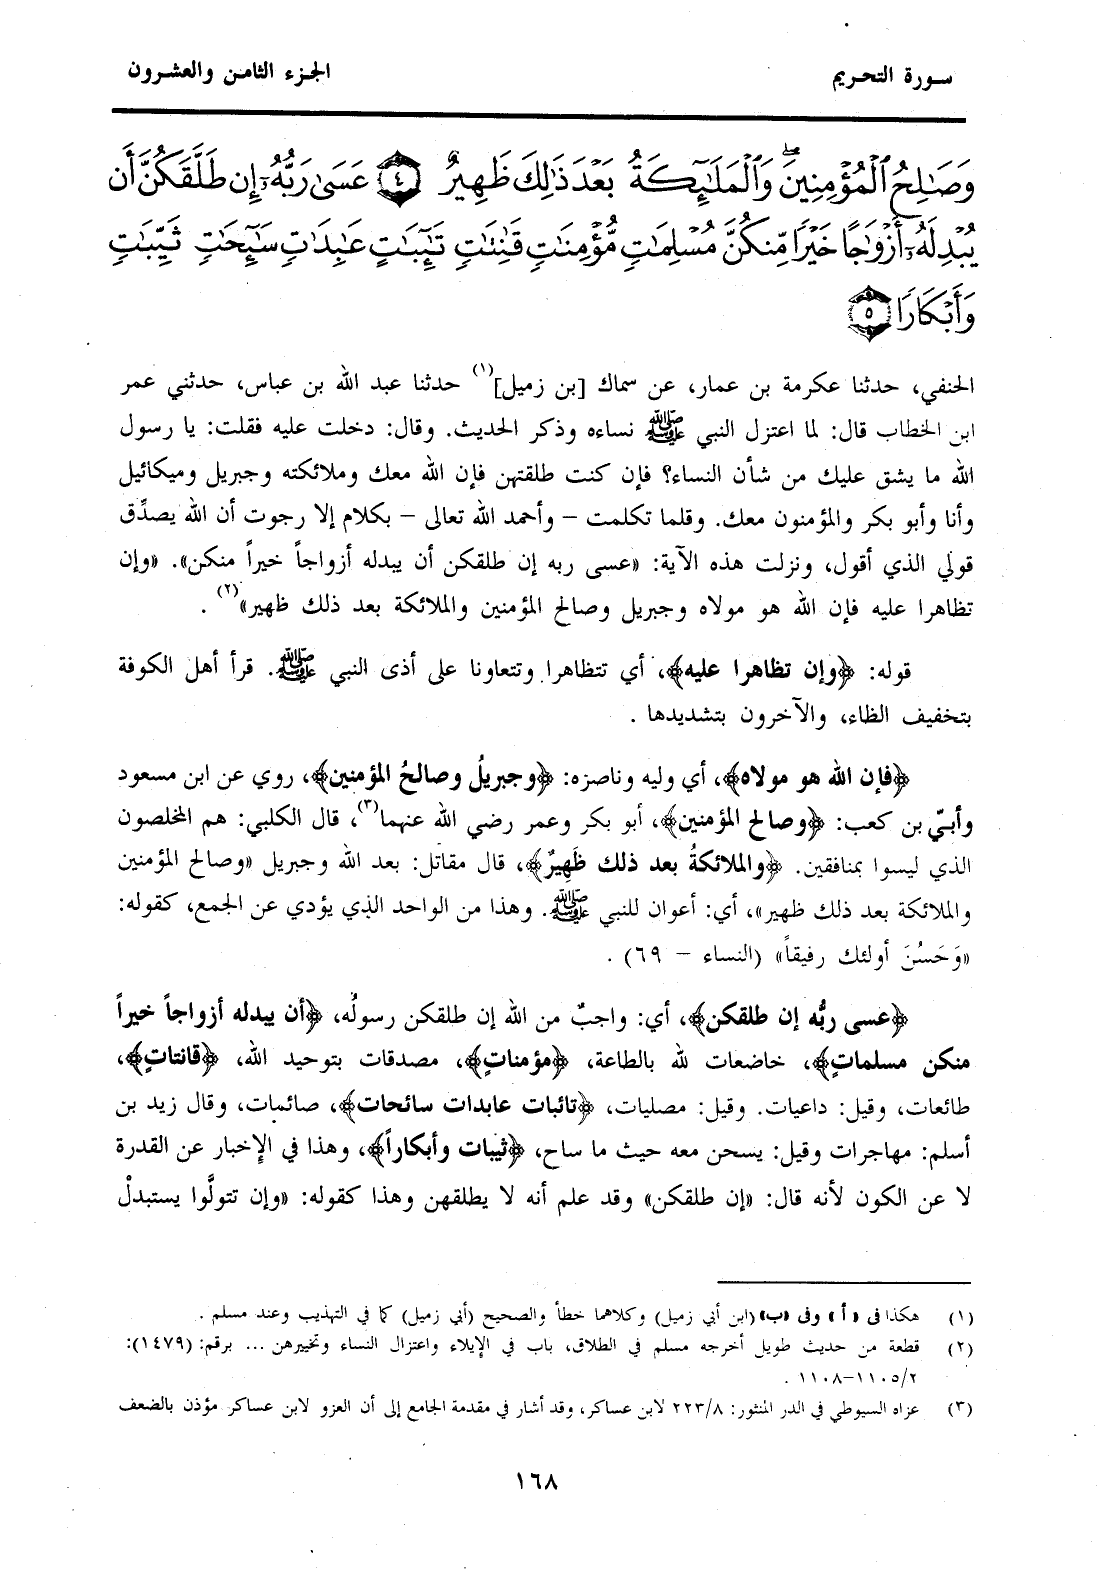 سورة التحريم
الجزء الثامن والعشرون
وَصَـٰلِحُ ٱلْمُؤْمِنِينَ ۖ وَٱلْمَلَـٰٓئِكَةُ بَعْدَ ذَٰلِكَ ظَهِيرٌ ﴿٤﴾ عَسَىٰ رَبُّهُۥٓ إِن طَلَّقَكُنَّ أَن
يُبْدِلَهُۥٓ أَزْوَٰجًا خَيْرًا مِّنكُنَّ مُسْلِمَـٰتٍ مُّؤْمِنَـٰتٍ قَـٰنِتَـٰتٍ تَـٰٓئِبَـٰتٍ عَـٰبِدَٰتٍ سَـٰٓئِحَـٰتٍ ثَيِّبَـٰتٍ
وَأَبْكَارًا ﴿٥﴾
الحنفي، حدثنا عكرمة بن عمار، عن سماك [بن زميل](١) حدثنا عبد الله بن عباس، حدثني عمر
ابن الخطاب قال: لما اعتزل النبي ﷺ نساءه وذكر الحديث. وقال: دخلت عليه فقلت: يا رسول
الله ما يشق عليك من شأن النساء؟ فإن كنت طلقتهن فإن الله معك وملائكته وجبريل وميكائيل
وأنا وأبو بكر والمؤمنون معك. وقلما تكلمت – وأحمد الله تعالى – بكلام إلا رجوت أن الله يصدِّق
قولي الذي أقول، ونزلت هذه الآية: «عسى ربه إن طلقكن أن يبدله أزواجاً خيراً منكن». «وإن
تظاهرا عليه فإن الله هو مولاه وجبريل وصالح المؤمنين والملائكة بعد ذلك ظهير»(٢) .
قوله: ﴿وإن تظاهرا عليه﴾، أي تتظاهرا وتتعاونا على أذى النبي ﷺ. قرأ أهل الكوفة
بتخفيف الظاء، والآخرون بتشديدها .
﴿فإن الله هو مولاه﴾، أي وليه وناصره: ﴿وجبريلُ وصالحُ المؤمنين﴾، روي عن ابن مسعود
وأبيّ بن كعب: ﴿وصالح المؤمنين﴾، أبو بكر وعمر رضي الله عنهما(٣)، قال الكلبي: هم المخلصون
الذي ليسوا بمنافقين. ﴿والملائكةُ بعد ذلك ظَهِيرٌ﴾، قال مقاتل: بعد الله وجبريل «وصالح المؤمنين
والملائكة بعد ذلك ظهير»، أي: أعوان للنبي ﷺ. وهذا من الواحد الذي يؤدي عن الجمع، كقوله:
«وَحَسُنَ أولئك رفيقاً» (النساء – ٦٩) .
﴿عسى ربُّه إن طلقكن﴾، أي: واجبٌ من الله إن طلقكن رسولُه، ﴿أن يبدله أزواجاً خيراً
منكن مسلماتٍ﴾، خاضعات لله بالطاعة، ﴿مؤمناتٍ﴾، مصدقات بتوحيد الله، ﴿قانتاتٍ﴾،
طائعات، وقيل: داعيات. وقيل: مصليات، ﴿تائبات عابدات سائحات﴾، صائمات، وقال زيد بن
أسلم: مهاجرات وقيل: يسحن معه حيث ما ساح، ﴿ثيبات وأبكاراً﴾، وهذا في الإخبار عن القدرة
لا عن الكون لأنه قال: «إن طلقكن» وقد علم أنه لا يطلقهن وهذا كقوله: «وإن تتولَّوا يستبدلْ
(١) هكذا فى «أ» وفى «ب» (ابن أبي زميل) وكلاهما خطأ والصحيح (أبي زميل) كما في التهذيب وعند مسلم .
(٢) قطعة من حديث طويل أخرجه مسلم في الطلاق، باب في الإيلاء واعتزال النساء وتخييرهن ... برقم: (١٤٧٩):
٢/١١٠٥–١١٠٨ .
(٣) عزاه السيوطي في الدر المنثور: ٢٢٣/٨ لابن عساكر، وقد أشار في مقدمة الجامع إلى أن العزو لابن عساكر مؤذن بالضعف
١٦٨